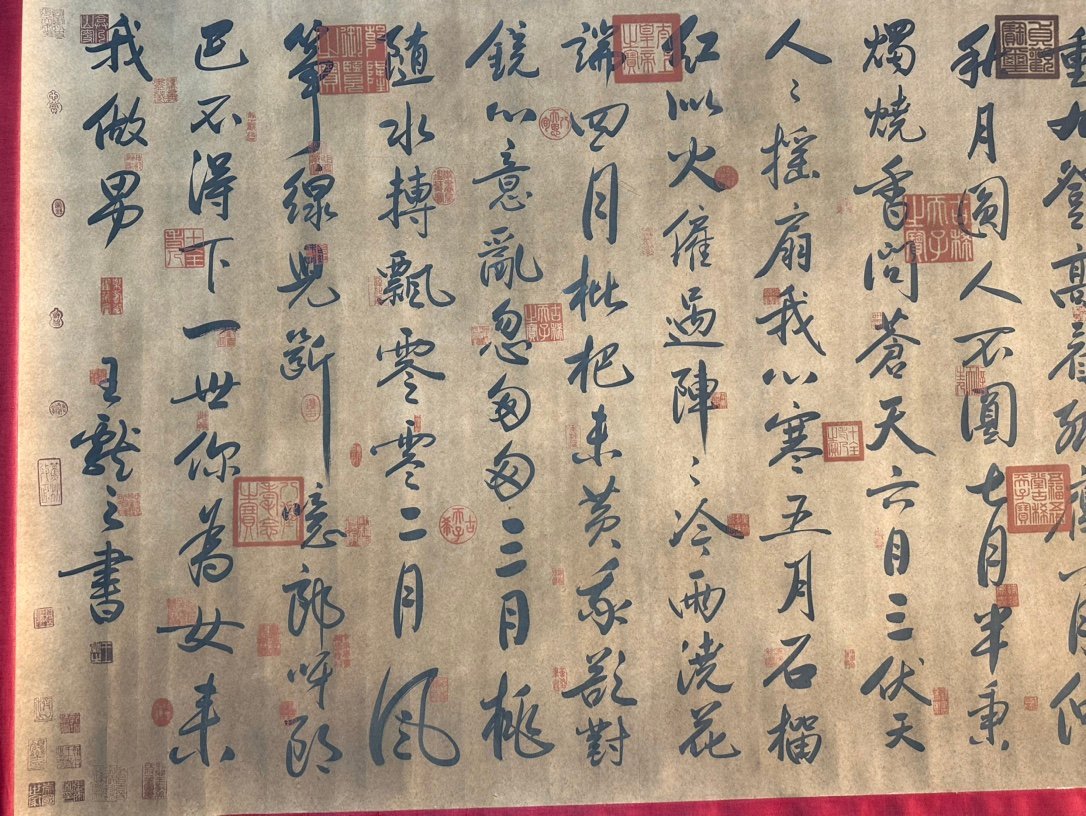 重九登高看孤雁八月仲
秋月圓人不圓七月半秉
燭燒香問蒼天六月三伏天
人〻搖扇我心寒五月石榴
紅似火偏遇陣〻冷雨澆花
端四月枇杷未黃我欲對
鏡心意亂忽匆匆三月桃
隨水摶飄零零二月風
箏線兒斷噫郎呀郎
巴不得下一世你為女來
我做男 王羲之書